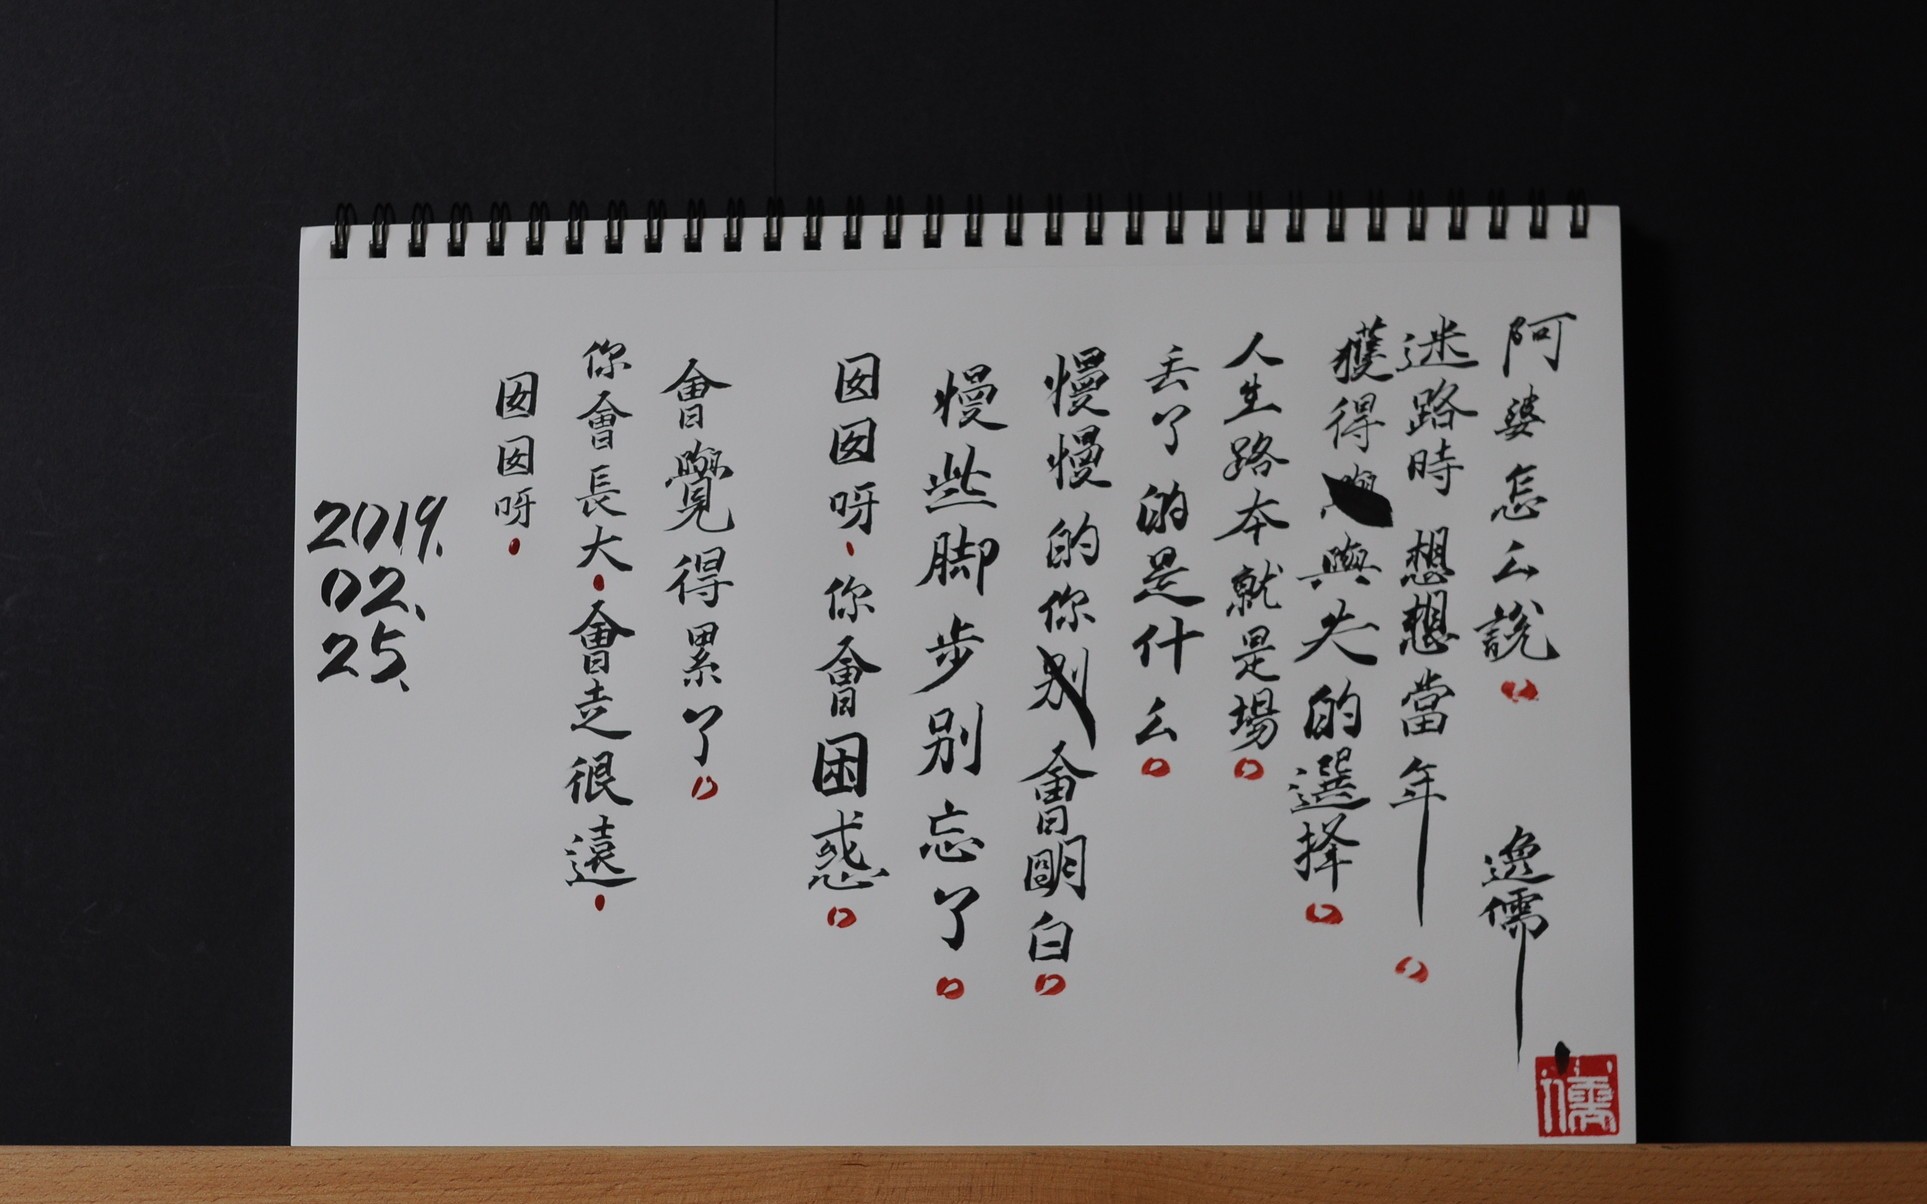 阿婆怎么說 逸儒
迷路時 想想當年
獲得與失的選择
人生路本就是場
丢了的是什么
慢慢的你别會明白
慢些脚步别忘了
囡囡呀,你會困惑
會覺得累了
你會長大,會走很遠,
囡囡呀,
2019.
02.
25.
儒